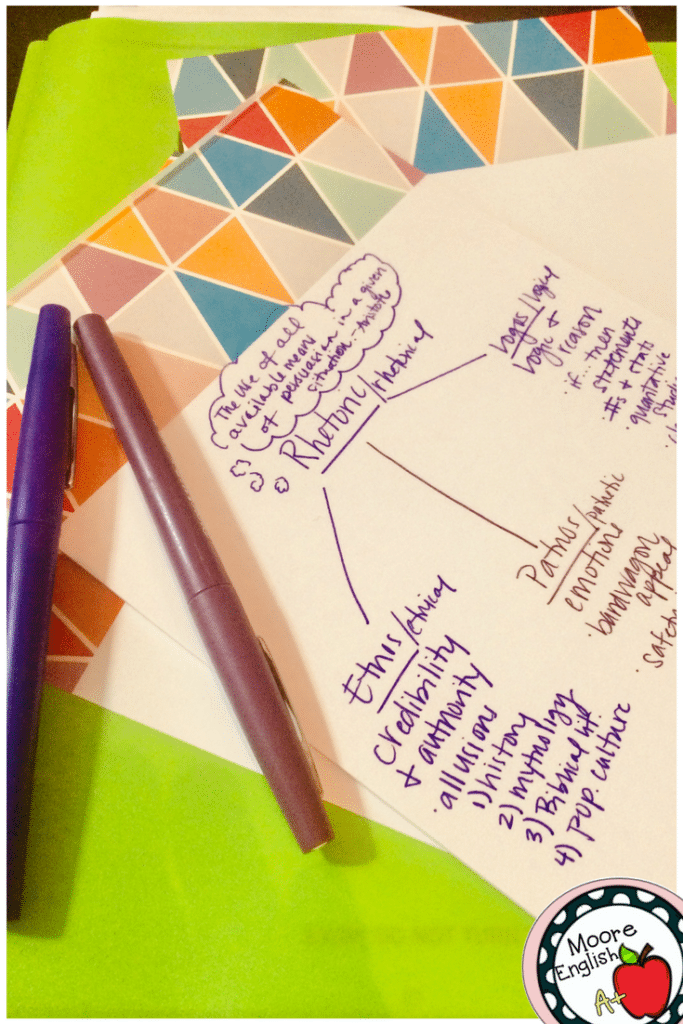 The use of all
available means
of persuasion in a given
situation. - Aristotle
Rhetoric/rhetorical
Logos/logical
logic +
reason
· if... then
statements
· #s + stats
· quantitative
Pathos/pathetic
emotions
· bandwagon
appeal
Ethos/ethical
credibility
+ authority
· allusions
1) history
2) mythology
3) Biblical lit
4) pop. culture
Moore
English
A+